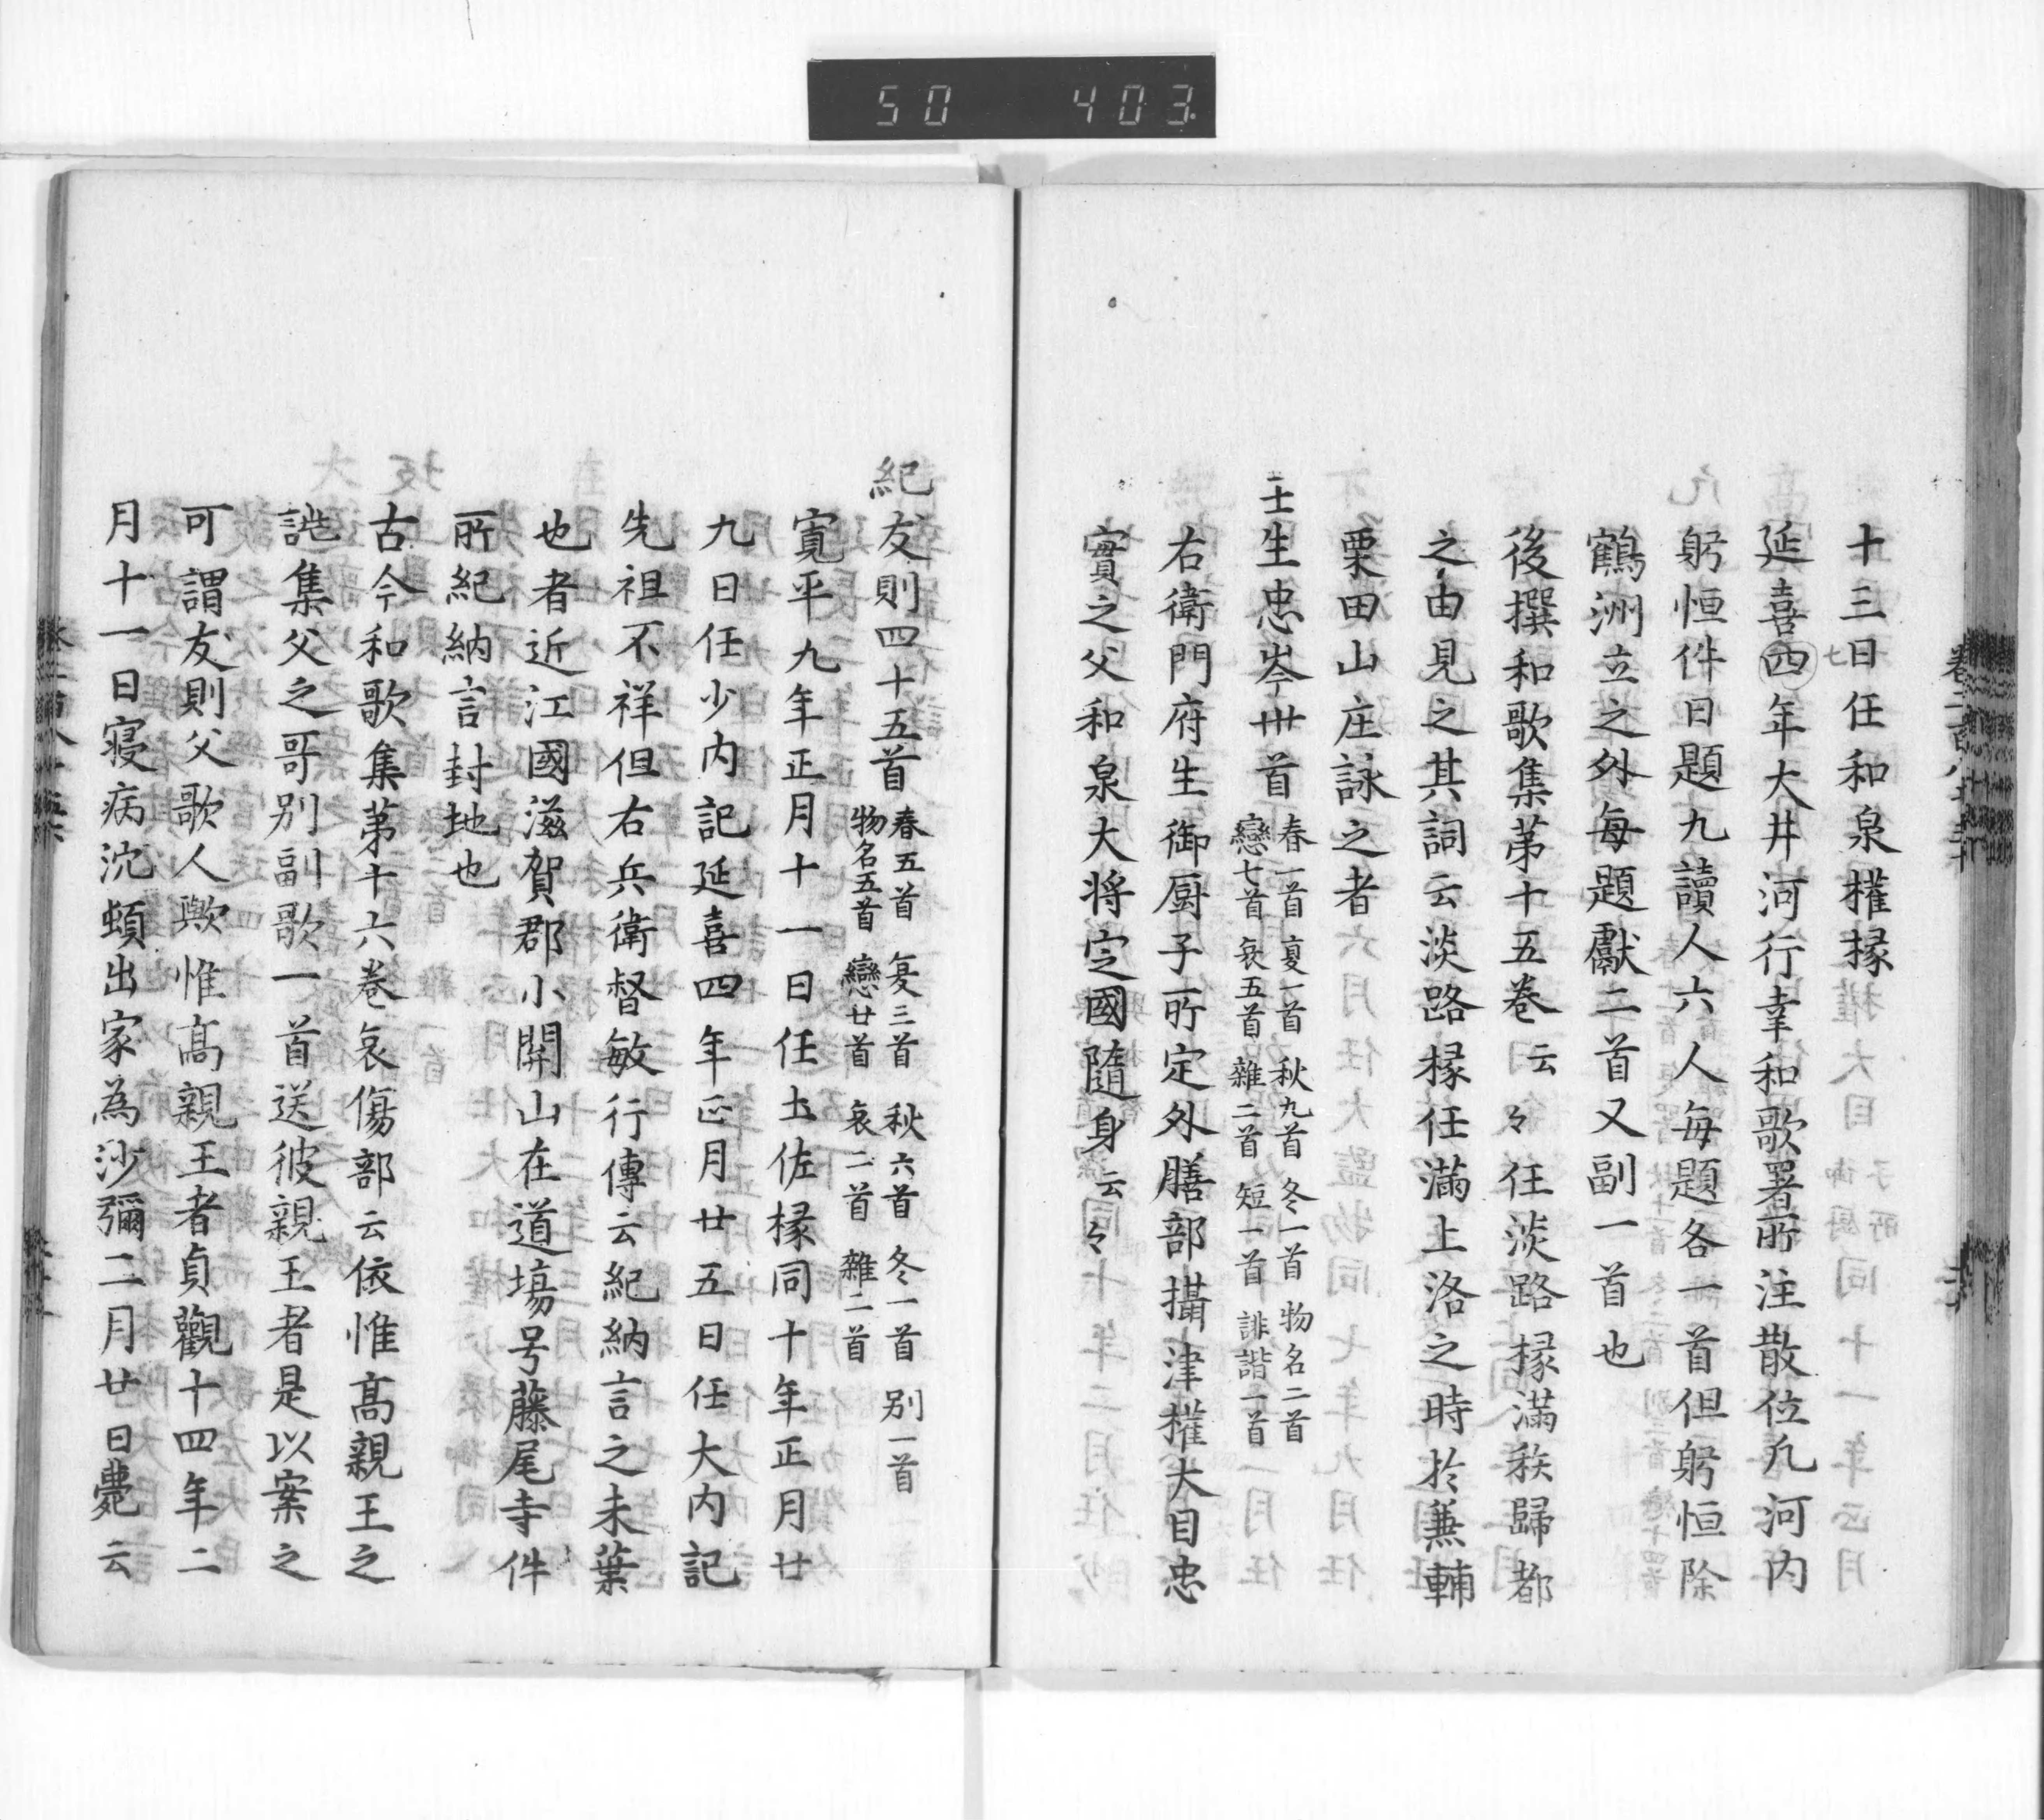 50 403
十三日任和泉権掾
延喜四年大井河行幸和歌署所注散位凡河内
七
躬恒件日題九讀人六人毎題各一首但躬恒除
鶴洲立之外毎題獻二首又副一首也
後撰和歌集第十五巻云々任淡路掾滿秩歸都
之由見之其詞云淡路掾任滿上洛之時於兼輔
粟田山庄詠之者
壬生忠岑卅首
春一首 夏一首 秋九首 冬一首 物名二首
戀七首 哀五首 雜二首 短一首 誹諧一首
右衛門府生御厨子所定外膳部攝津権大目忠
實之父和泉大将定國隨身云々
紀友則四十五首
春五首 夏三首 秋六首 冬一首 別一首
物名五首 戀廿首 哀二首 雜二首
寛平九年正月十一日任土佐掾同十年正月廿
九日任少内記延喜四年正月廿五日任大内記
先祖不祥但右兵衛督敏行傳云紀納言之末葉
也者近江國滋賀郡小開山在道場号藤尾寺件
所紀納言封地也
古今和歌集第十六巻哀傷部云依惟髙親王之
誂集父之哥別副歌一首送彼親王者是以案之
可謂友則父歌人歟惟髙親王者貞觀十四年二
月十一日寝病沈頓出家為沙彌二月廿日薨云